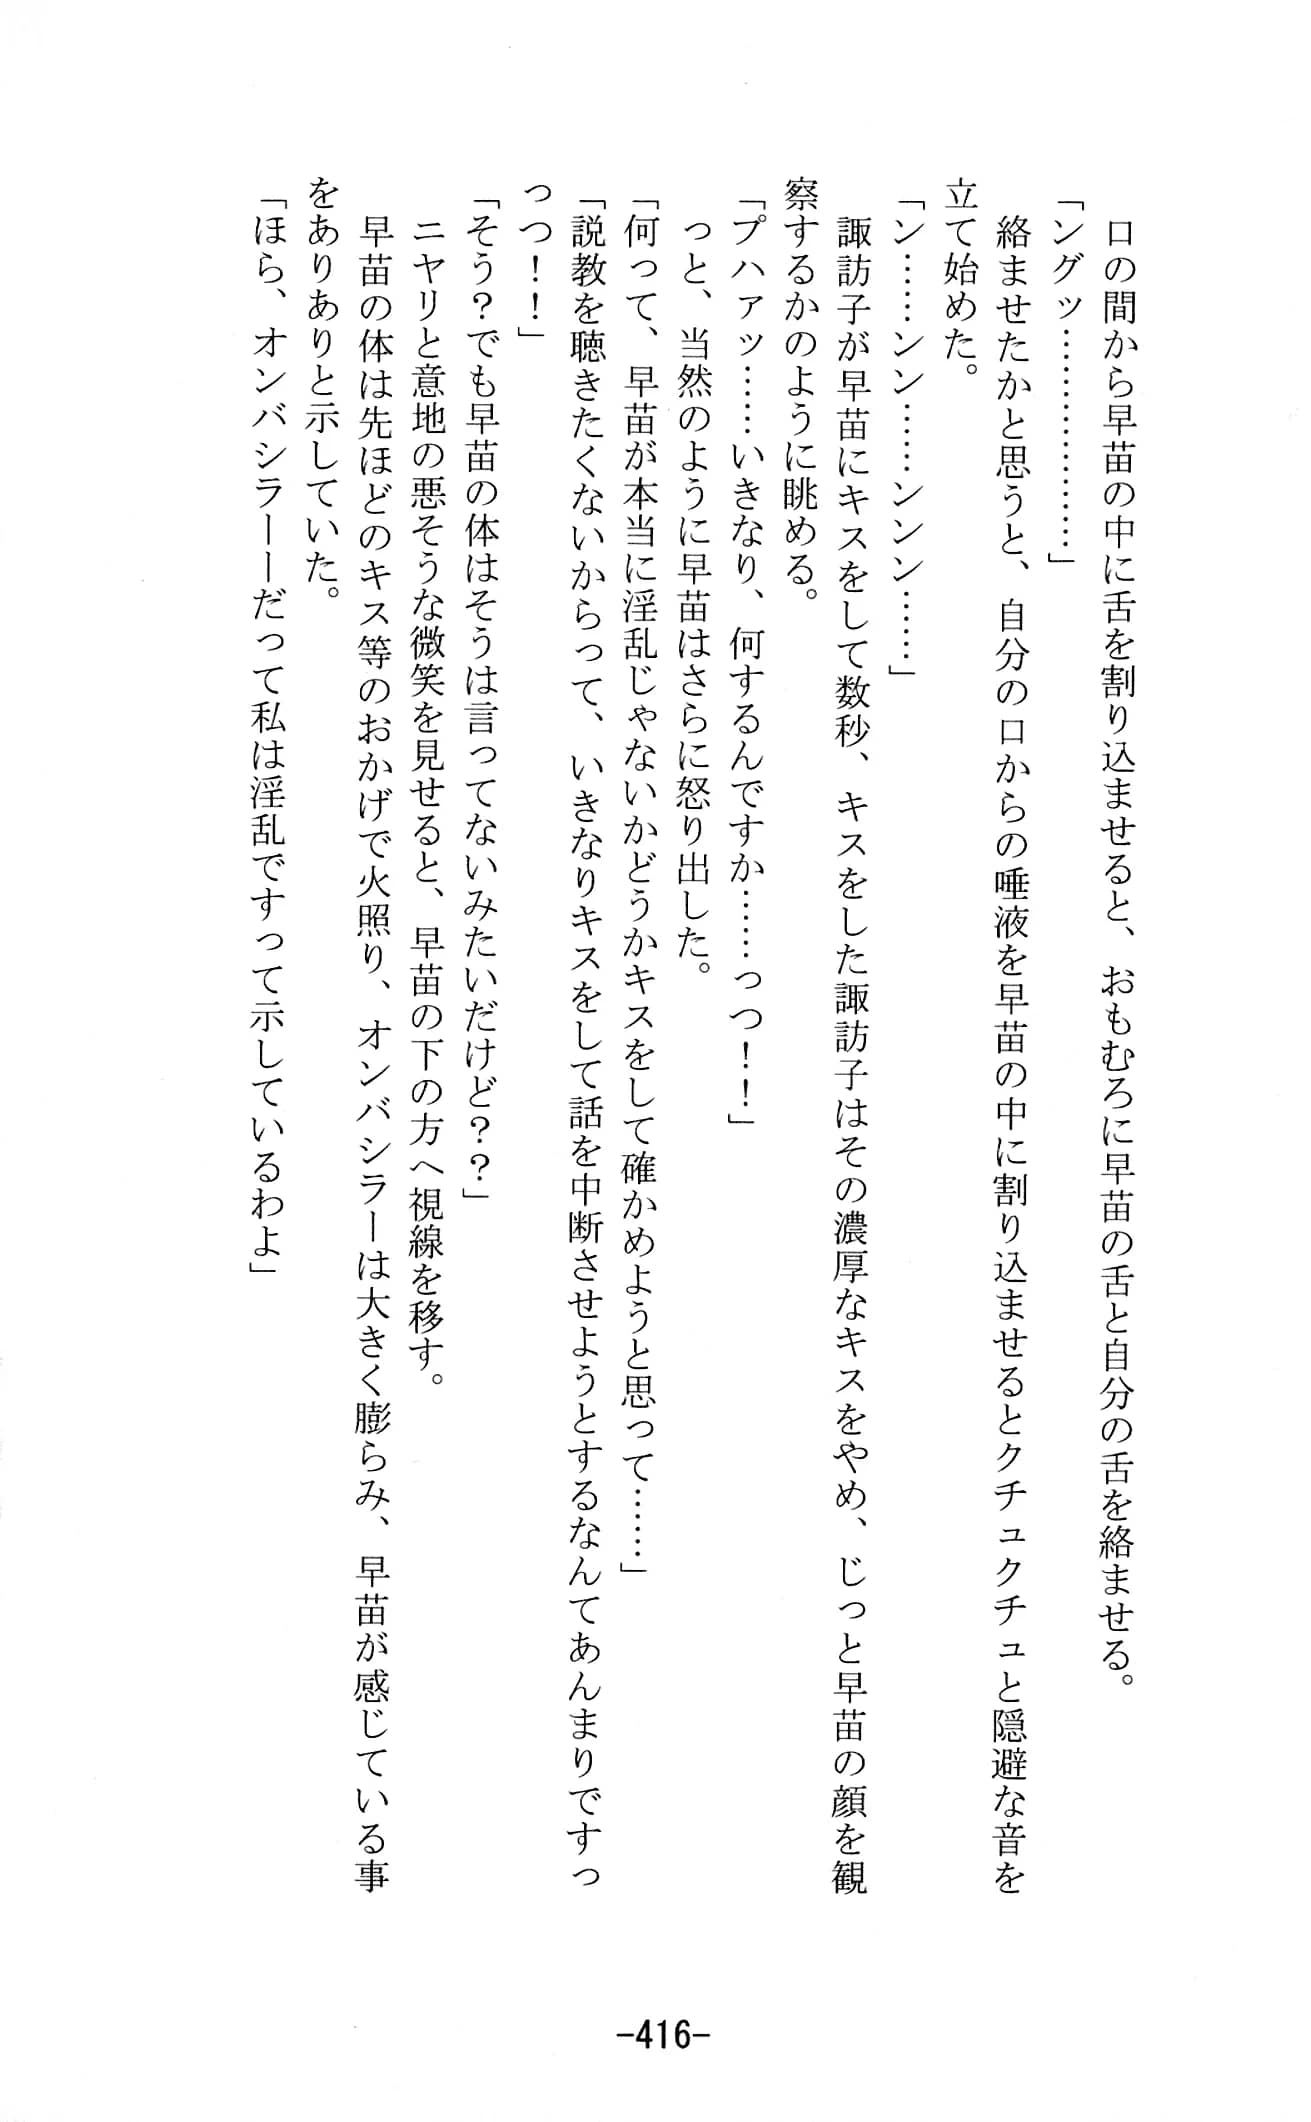 口の間から早苗の中に舌を割り込ませると、おもむろに早苗の舌と自分の舌を絡ませる。
「ングッ………………」
絡ませたかと思うと、自分の口からの唾液を早苗の中に割り込ませるとクチュクチュと隠避な音を
立て始めた。
「ン……ンン……ンンン……」
諏訪子が早苗にキスをして数秒、キスをした諏訪子はその濃厚なキスをやめ、じっと早苗の顔を観
察するかのように眺める。
「プハァッ……いきなり、何するんですか……っつ！！」
っと、当然のように早苗はさらに怒り出した。
「何って、早苗が本当に淫乱じゃないかどうかキスをして確かめようと思って……」
「説教を聴きたくないからって、いきなりキスをして話を中断させようとするなんてあんまりですっ
っつ！！」
「そう？でも早苗の体はそうは言ってないみたいだけど？？」
ニヤリと意地の悪そうな微笑を見せると、早苗の下の方へ視線を移す。
早苗の体は先ほどのキス等のおかげで火照り、オンバシラーは大きく膨らみ、早苗が感じている事
をありありと示していた。
「ほら、オンバシラーーだって私は淫乱ですって示しているわよ」
-416-